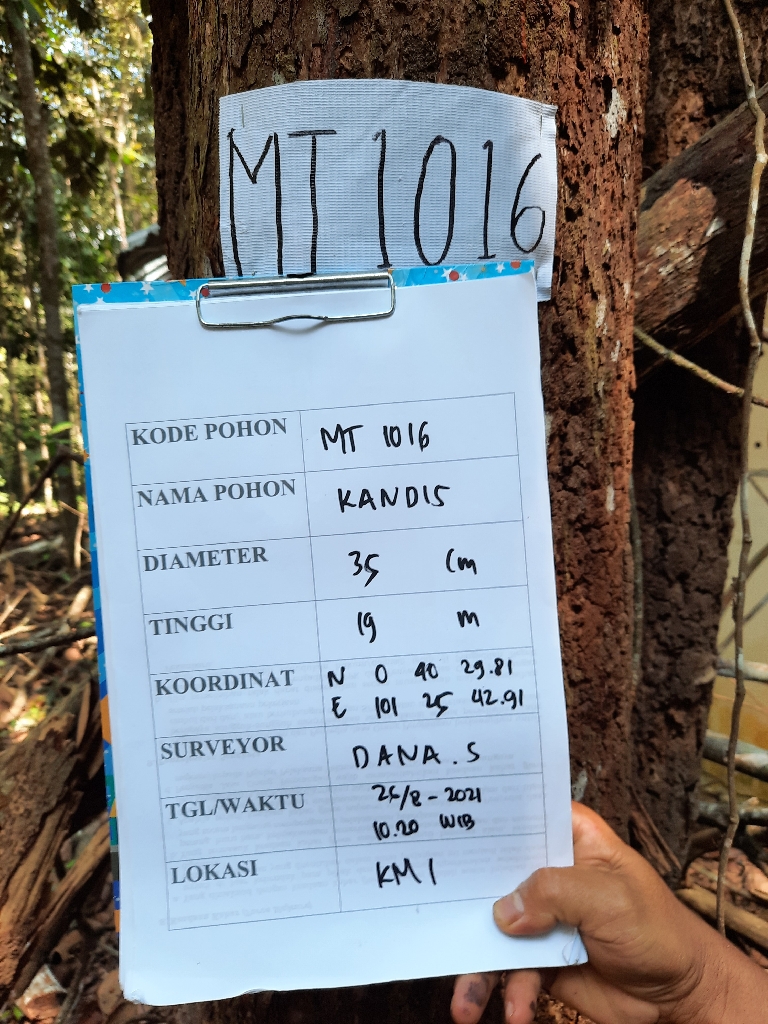 MT 1016
KODE POHON MT 1016
NAMA POHON KANDIS
DIAMETER 35 Cm
TINGGI 19 m
KOORDINAT N 0 40 29.81
E 101 25 42.91
SURVEYOR DANA.S
TGL/WAKTU 25/8-2021
10.20 WIB
LOKASI KM 1